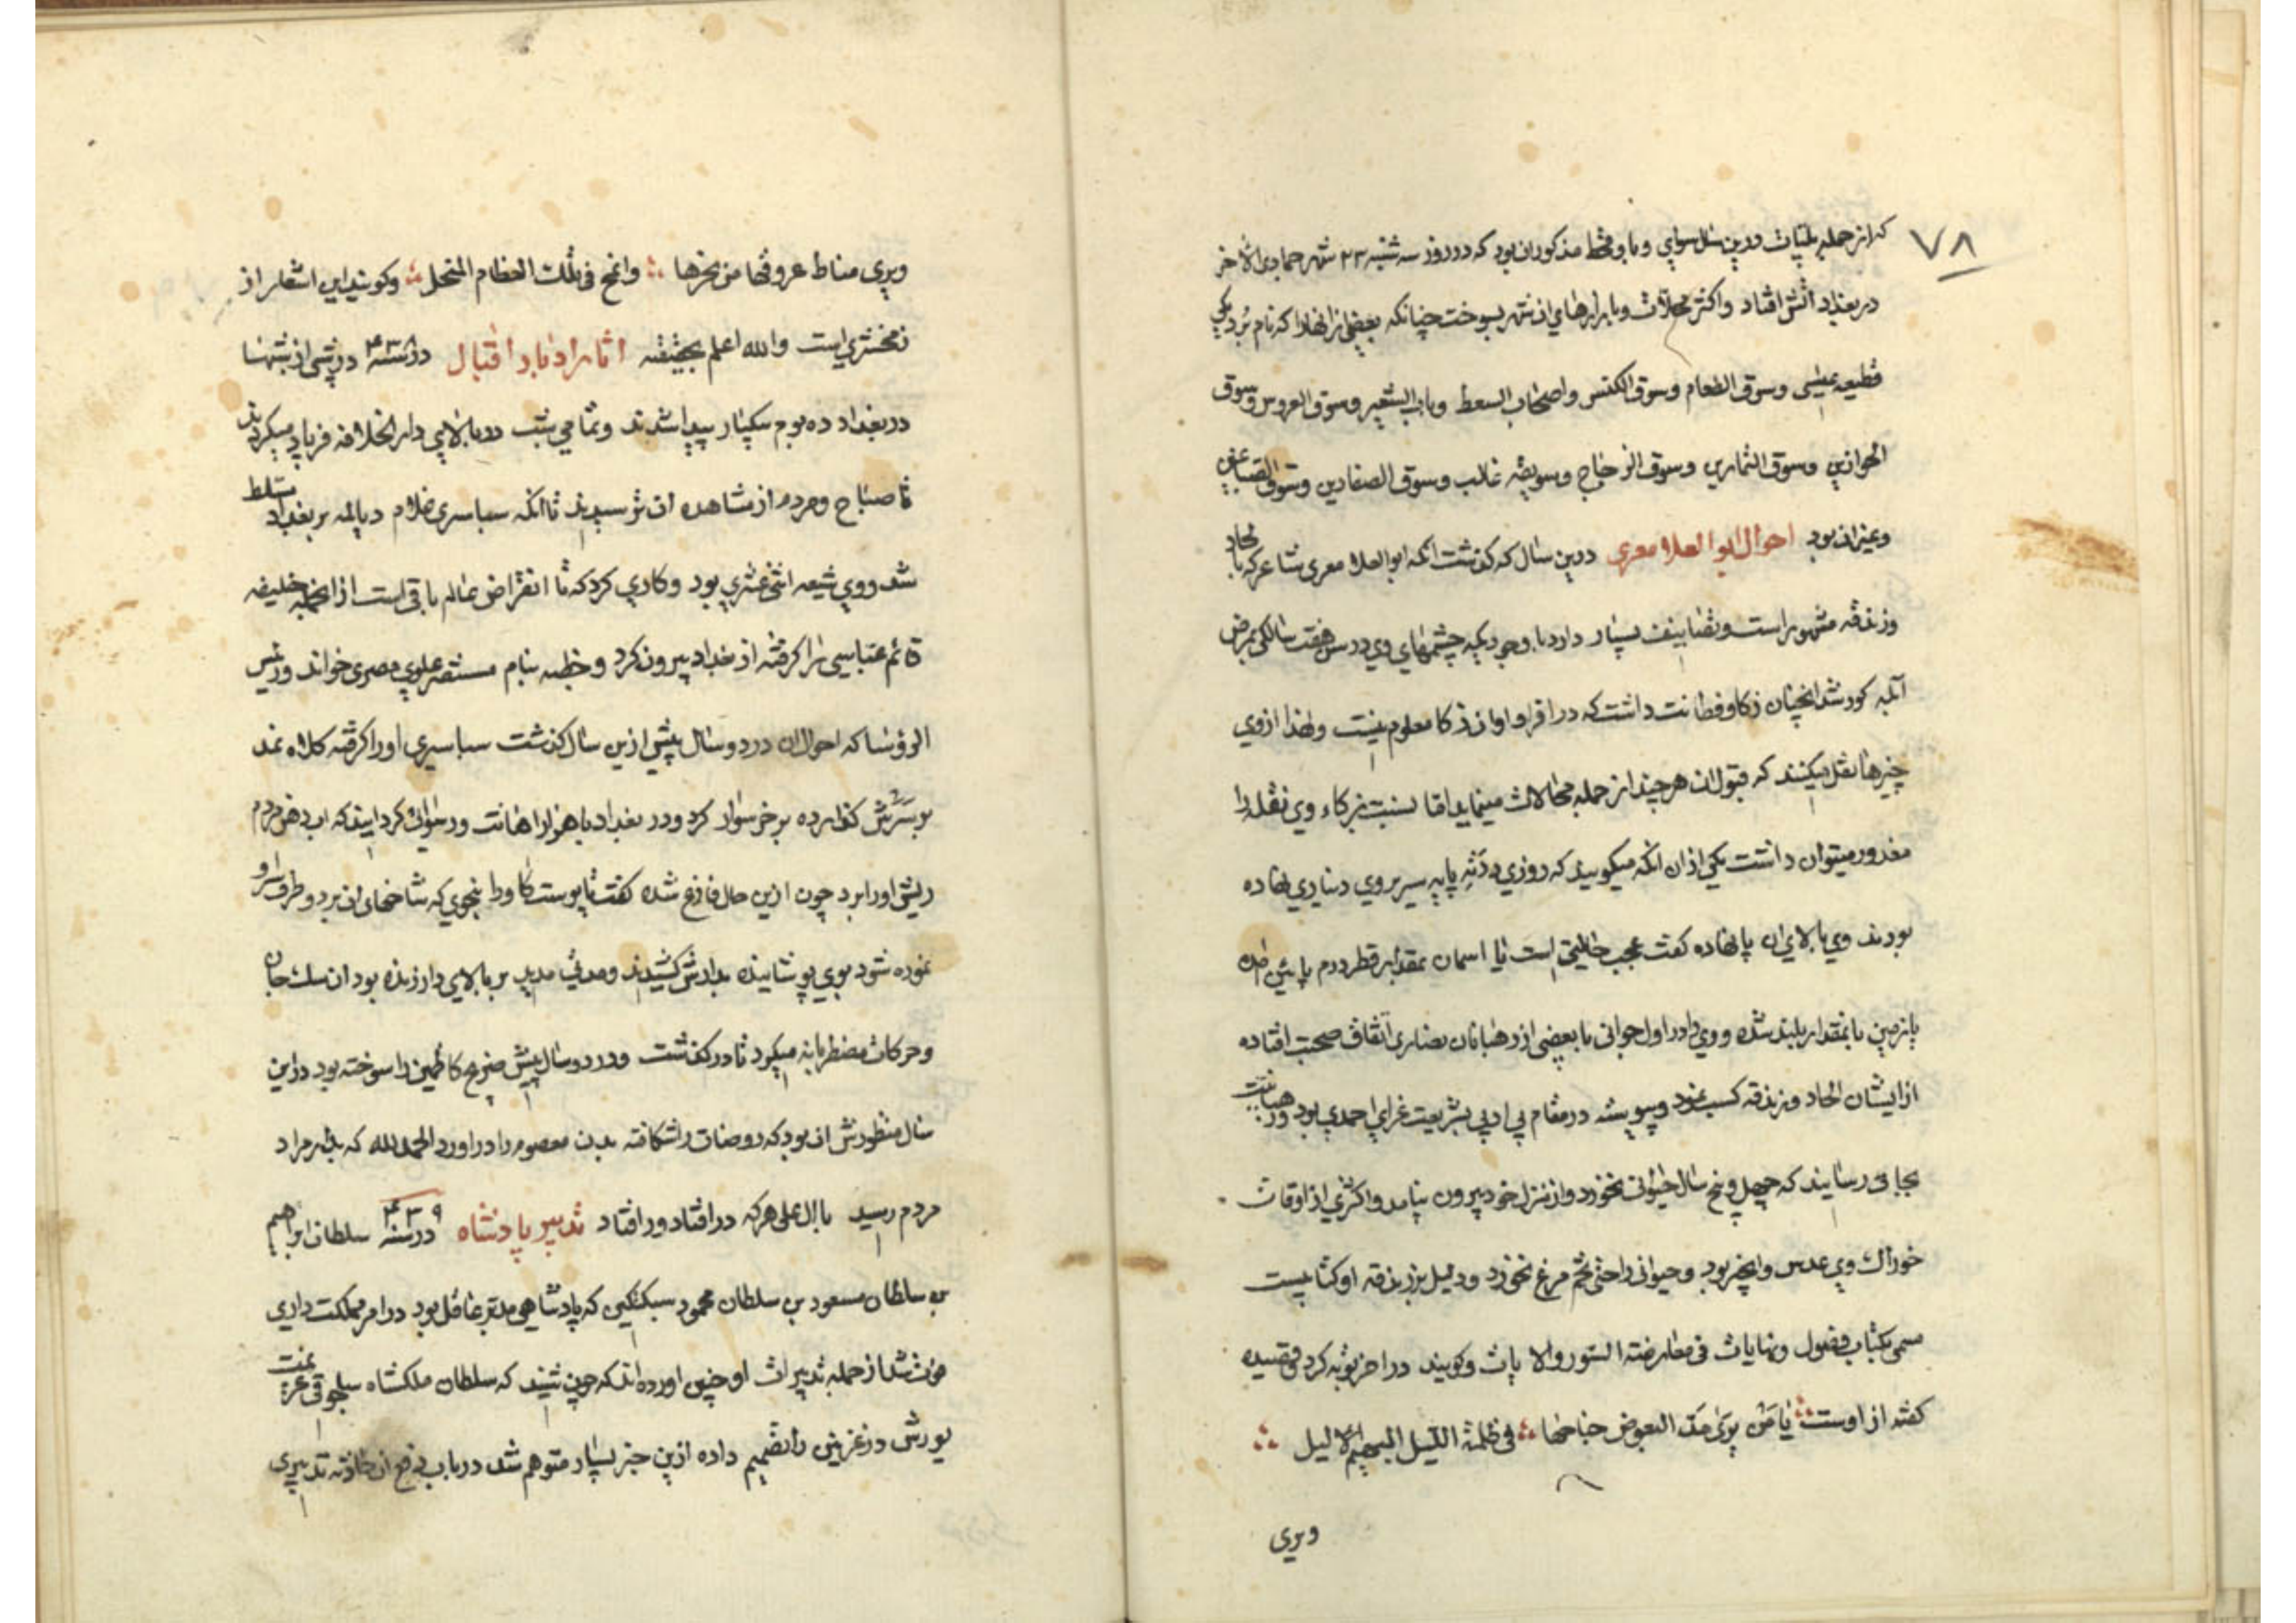 ۷۸
که از جمله بلیات درین سال سوای وبا و قحط مذکور ان بود که در روز سه شنبه ۲۳ شهر جمادی الاخر
در بغداد اتش افتاد و اکثر محلات و بازارهای ان شهر بسوخت چنانکه بعضی از انها را که نام برد یکی
قطیعه عیسی و سوق الطعام و سوق الکنس و اصحاب السعط و باب الشعیر و سوق العروس و سوق
و سوق و سوق الزجاج و سویقه غالب و سوق الصفارین و سوق الصباغین
و غیر ان بود احوال ابو العلا معری درین سال که گذشت انکه ابو العلا معری شاعر که با لحاد
و زندقه مشهور است و تصانیف بسیار دارد با وجودیکه چشمهای وی در سن هفت سالگی بمرض
آبله کور شد انچنان ذکا و فطانت داشت که در اقران او ان ذکا معلوم نیست و لهذا از وی
چیزها نقل میکنند که قبول ان هر چند از جمله محالات مینماید اما نسبت بذکاء وی نقله را
معذور میتوان داشت یکی از ان انکه میگویند که روزی در ته پایه سریر وی دیناری نهاده
بودند وی بالای ان پا نهاده گفت عجب حالیتی است یا اسمان بمقدار قطر درم پائین امده
یا زمین بانمقدار بلند شده و وی را در اول جوانی با بعضی از رهبانان نصاری اتفاق صحبت افتاده
از ایشان الحاد و زندقه کسب نمود و پیوسته در مقام بی ادبی بشریعت غرای احمدی بود و رهبانیت
بجائی رسانید که چهل و پنج سال حیوانی نخورد و از منزل خود بیرون نیامد و اکثری از اوقات
خوراک وی عدس و انجیر بود و حیوانی را حتی تخم مرغ نخورد و دلیل بر زندقه او کتابیست
مسمی بکتاب فصول و نهایات فی معارضة السور والایات و گویند در اخر توبه کرد و قصیده
گفته از اوست یا من یری مد البعوض جناحها فی ظلمة اللیل البهیم الالیل
ویری
ویری مناط عروقها من نحرها والمخ فی تلک العظام النحل و گویند این اشعار از
زمخشری است والله اعلم بحقیقته اثار ادبار اقبال در سنه ۴۳۸ در شبی از شبها
در بغداد ده بوم سکپیار پیدا شدند و تمامی شب در بالای دار الخلافه فریاد میکردند
تا صباح و مردم از مشاهده ان ترسیدند تا انکه سباسری غلام دیالمه بر بغداد مسلط
شد و وی شیعه اثنی عشری بود و کاری کرد که تا انقراض عالم باقی است از انجمله خلیفه
قائم عباسی را گرفته از بغداد بیرون کرد و خطبه بنام مستنصر علوی مصری خواند و رئیس
الرؤسا که احوال ان در دو سال پیش ازین سال گذشت سباسیری او را گرفته کلاه نمد
بر سرش گذارده بر خر سوار کرد و در بغداد با هزار اهانت و رسوائی گردانید که اب دهن مردم
ریش او را برد چون ازین حال فارغ شده گفت تا پوست گاو را بنحوی که شاخهای ان بر دو طرف سر او
نموده شود بوی پوشانیده بدارش کشیدند و مدتی مدید بر بالای دار زنده بود ان سک جان
و حرکات مضطربانه میکرد تا در گذشت و در دو سال پیش ضریح کاظمین را سوخته بود درین
سال منظورش ان بود که روضات را شکافته بدن معصوم را در اورد الحمد لله که بمراد
مردم رسید با ال علی هر که در افتاد ور افتاد تدبیر پادشاه در سنه ۴۳۹ سلطان ابراهیم
بن سلطان مسعود بن سلطان محمود سبکتکین که پادشاهی مدبر عاقل بود در امر مملکت داری
فوت شد از جمله تدبیرات او چنین اورده اند که چون شنید که سلطان ملکشاه سلجوقی عزیمت
یورش در غزنین را تصمیم داده ازین خبر بسیار متوهم شد در باب دفع ان حادثه تدبیری